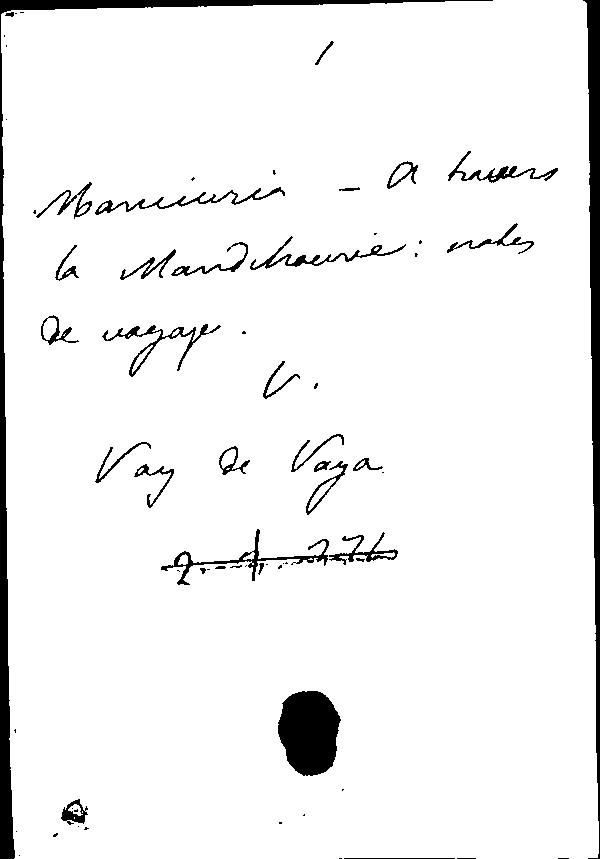 /
Manciuria – A travers
la Mandchourie: notes
de voyage.
V.
Vay de Vaya